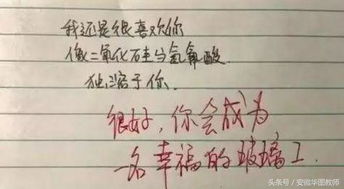 我还是很喜欢你
像二氧化硅与氢氟酸
独溶于你.
很好，你会成为
一名幸福的玻璃工.
头条号 / 安徽华图教师